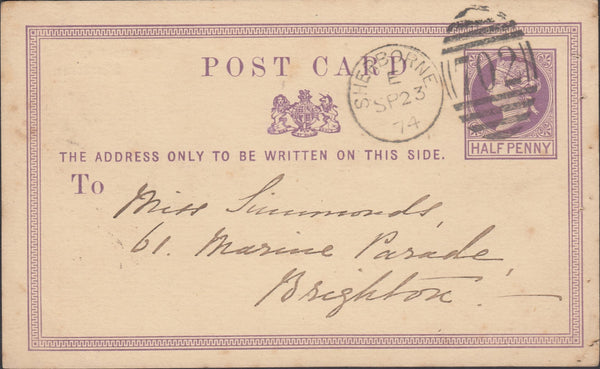 POST CARD
SHERBORNE
E
SP 23
74
HALF PENNY
THE ADDRESS ONLY TO BE WRITTEN ON THIS SIDE.
To
Miss Simmonds,
61. Marine Parade
Brighton. —